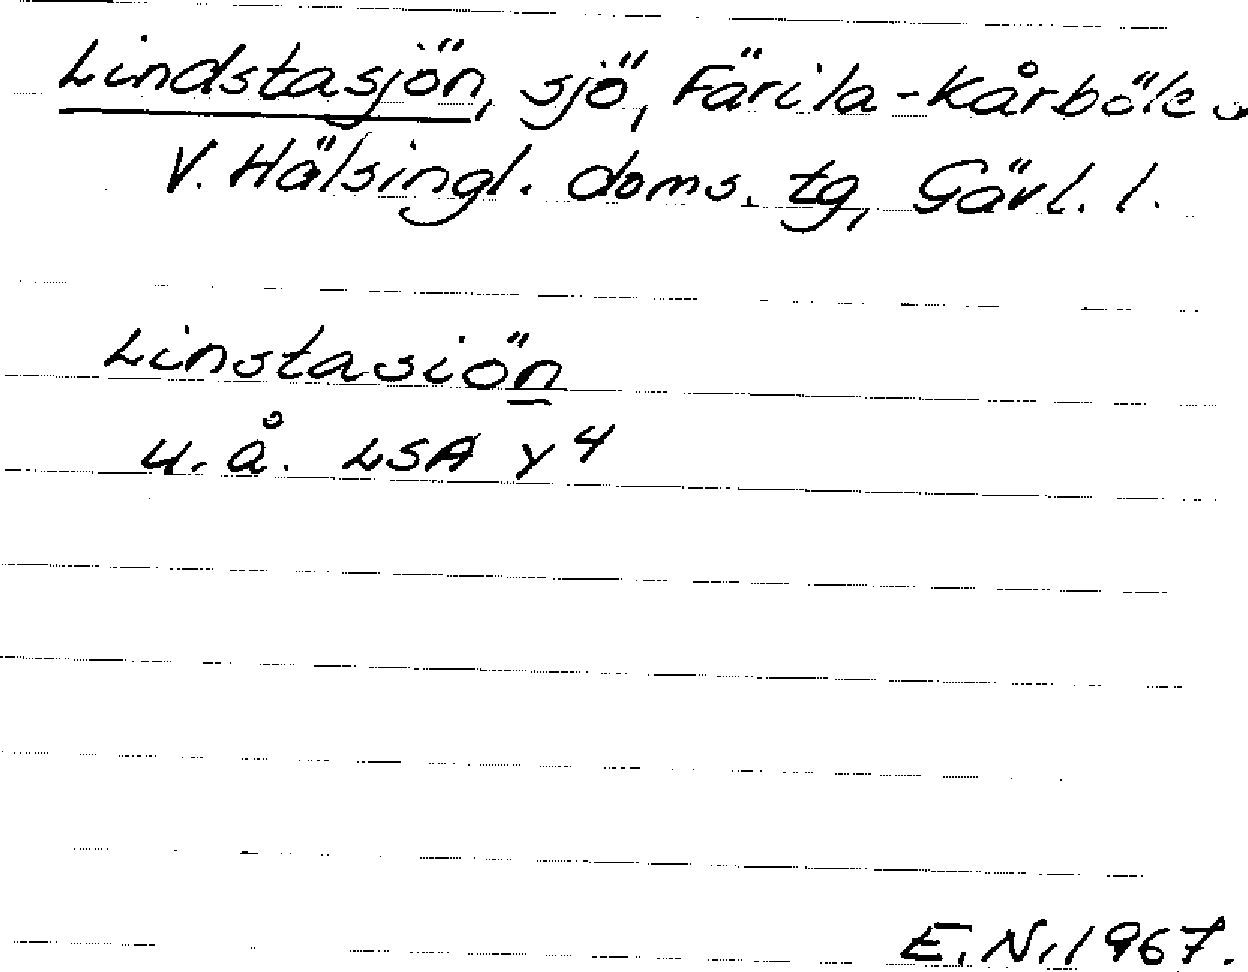 Lindstasjön, sjö, Färila-Kårböle s
V. Hälsingl. doms. tg, Gävl. l.
Linstasiön
u. å. LSA Y 4
E.N. 1967.